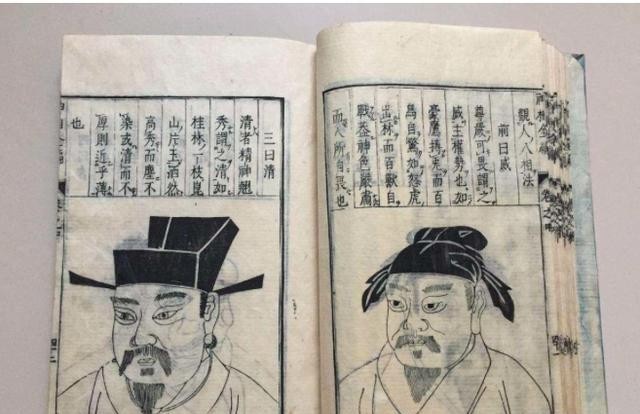 觀人八相法
前曰威
尊嚴可畏謂之
威主權勢也如
豪鷹搏兔而百
鳥自驚如怒虎
出林而百獸自
戰蓋神色嚴肅
而人所自畏也
三曰清
清者精神翹
秀謂之清如
桂林一枝崑
山片玉洒然
高秀而塵不
染或清而不
厚則近乎薄
也